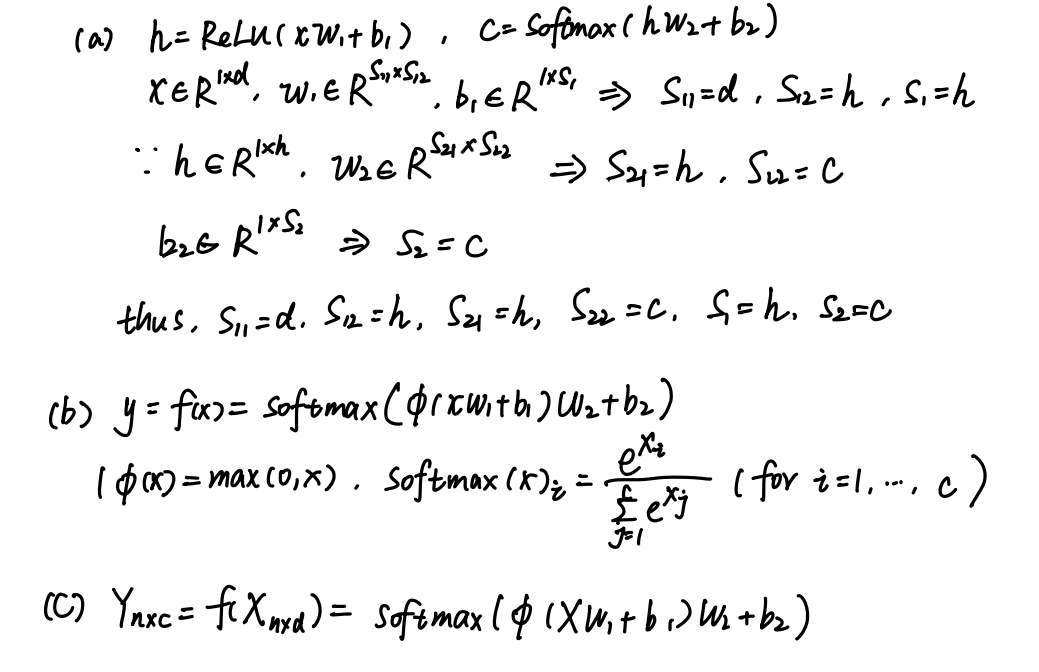 (a) h = ReLu(xW₁+b₁), C = Softmax(hW₂+b₂)
x∈R^{1×d}, W₁∈R^{S₁₁×S₁₂}, b₁∈R^{1×S₁} ⇒ S₁₁=d, S₁₂=h, S₁=h
∵ h∈R^{1×h}, W₂∈R^{S₂₁×S₂₂} ⇒ S₂₁=h, S₂₂=C
b₂∈R^{1×S₂} ⇒ S₂=C
thus, S₁₁=d, S₁₂=h, S₂₁=h, S₂₂=C, S₁=h, S₂=C
(b) y = f(x) = softmax(ϕ(xW₁+b₁)W₂+b₂)
(ϕ(x) = max(0,x), softmax(x)_i = e^{x_i} / ∑_{j=1}^{c} e^{x_j} (for i=1,…, c)
(C) Y_{n×c} = f(X_{n×d}) = softmax(ϕ(XW₁+b₁)W₂+b₂)